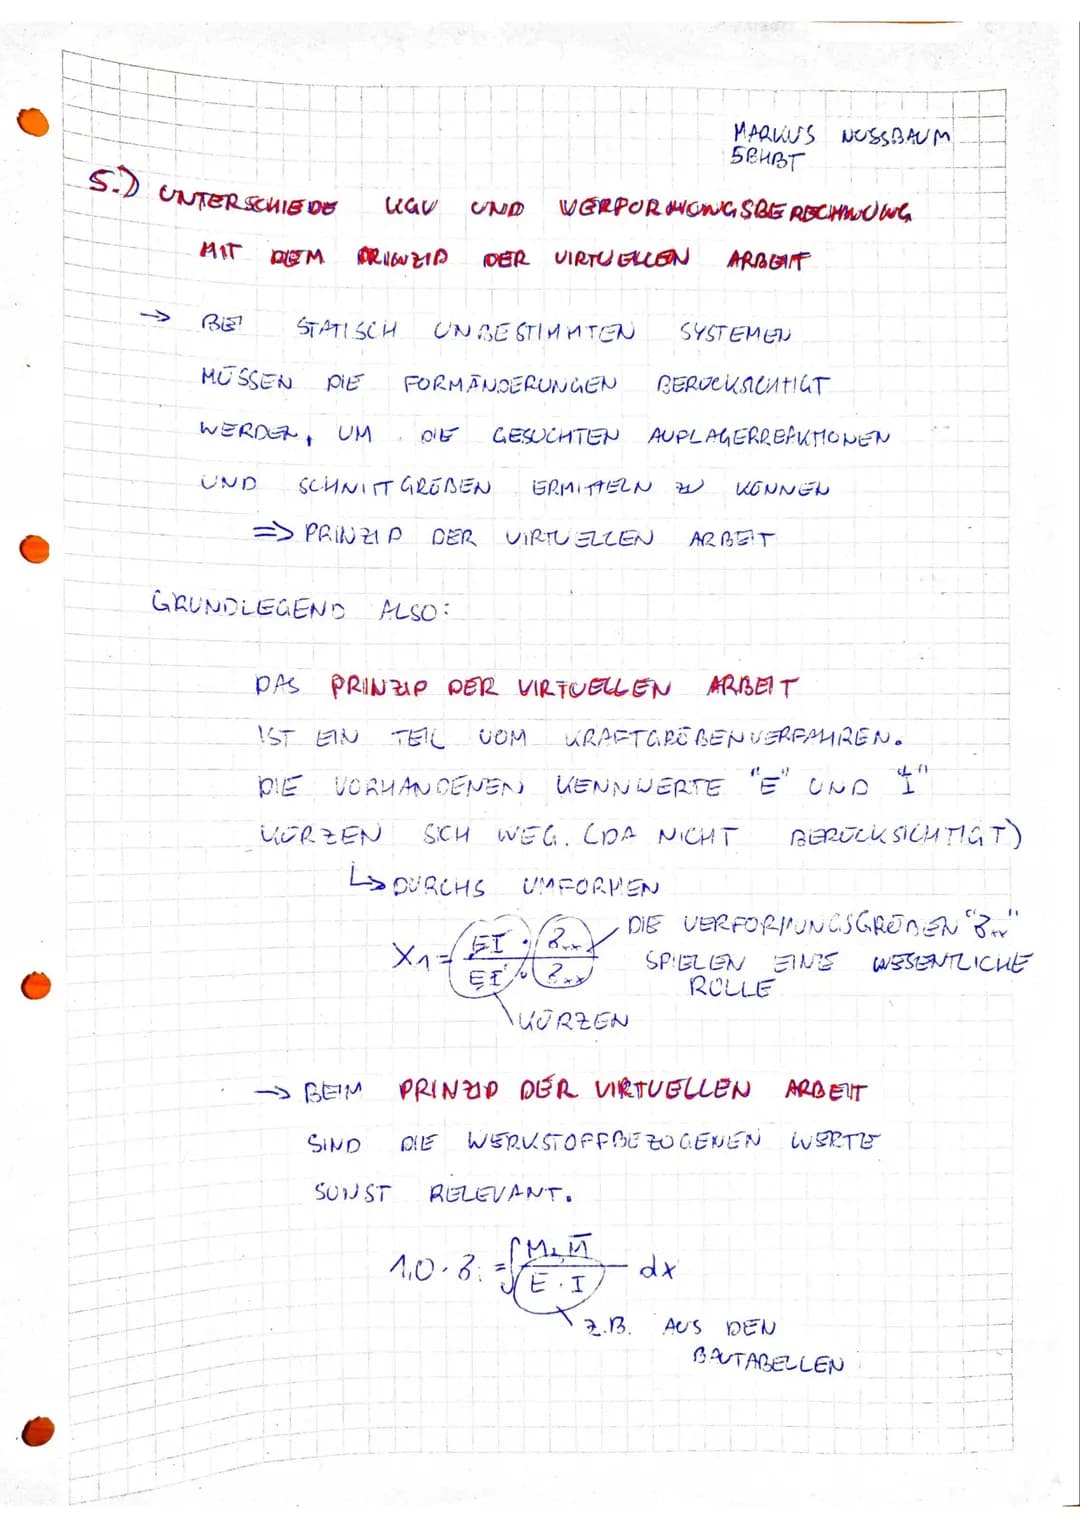 MARKUS NUSSBAUM
5BHBT
5.) UNTERSCHIEDE KGV UND VERFORMUNGSBERECHNUNG
MIT DEM PRINZIP DER VIRTUELLEN ARBEIT
→ BEI STATISCH UNBESTIMMTEN SYSTEMEN
MÜSSEN DIE FORMÄNDERUNGEN BERÜCKSICHTIGT
WERDEN, UM DIE GESUCHTEN AUFLAGERREAKTIONEN
UND SCHNITTGRÖßEN ERMITTELN ZU KÖNNEN
=> PRINZIP DER VIRTUELLEN ARBEIT
GRUNDLEGEND ALSO:
DAS PRINZIP DER VIRTUELLEN ARBEIT
IST EIN TEIL VOM KRAFTGRÖßENVERFAHREN.
DIE VORHANDENEN KENNWERTE "E" UND "I"
KÜRZEN SICH WEG. (DA NICHT BERÜCKSICHTIGT)
↳ DURCHS UMFORMEN
DIE VERFORMUNGSGRÖßEN "δxx"
X1 = EI · δxx / EI · δxx
SPIELEN EINE WESENTLICHE
ROLLE
KÜRZEN
→ BEIM PRINZIP DER VIRTUELLEN ARBEIT
SIND DIE WERKSTOFFBEZOGENEN WERTE
SONST RELEVANT.
1,0 · δi = ∫ M · M̅ / E · I dx
Z.B. AUS DEN
BAUTABELLEN